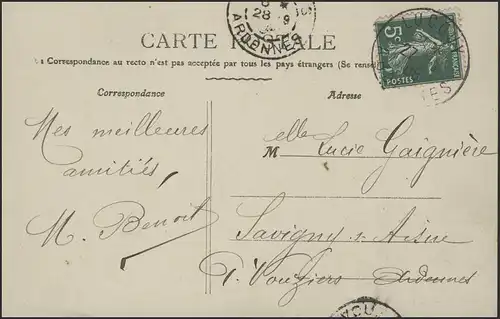 28 -9
ARDENNES
CARTE POSTALE
5c
POSTES
La Correspondance au recto n'est pas acceptée par tous les pays étrangers (Se rense
Correspondance
Adresse
Mes meilleures
amitiés,
M. Benoit
Melle Lucie Gaignière
Savigny s. Aisne
P. Vouziers Ardennes
VOU